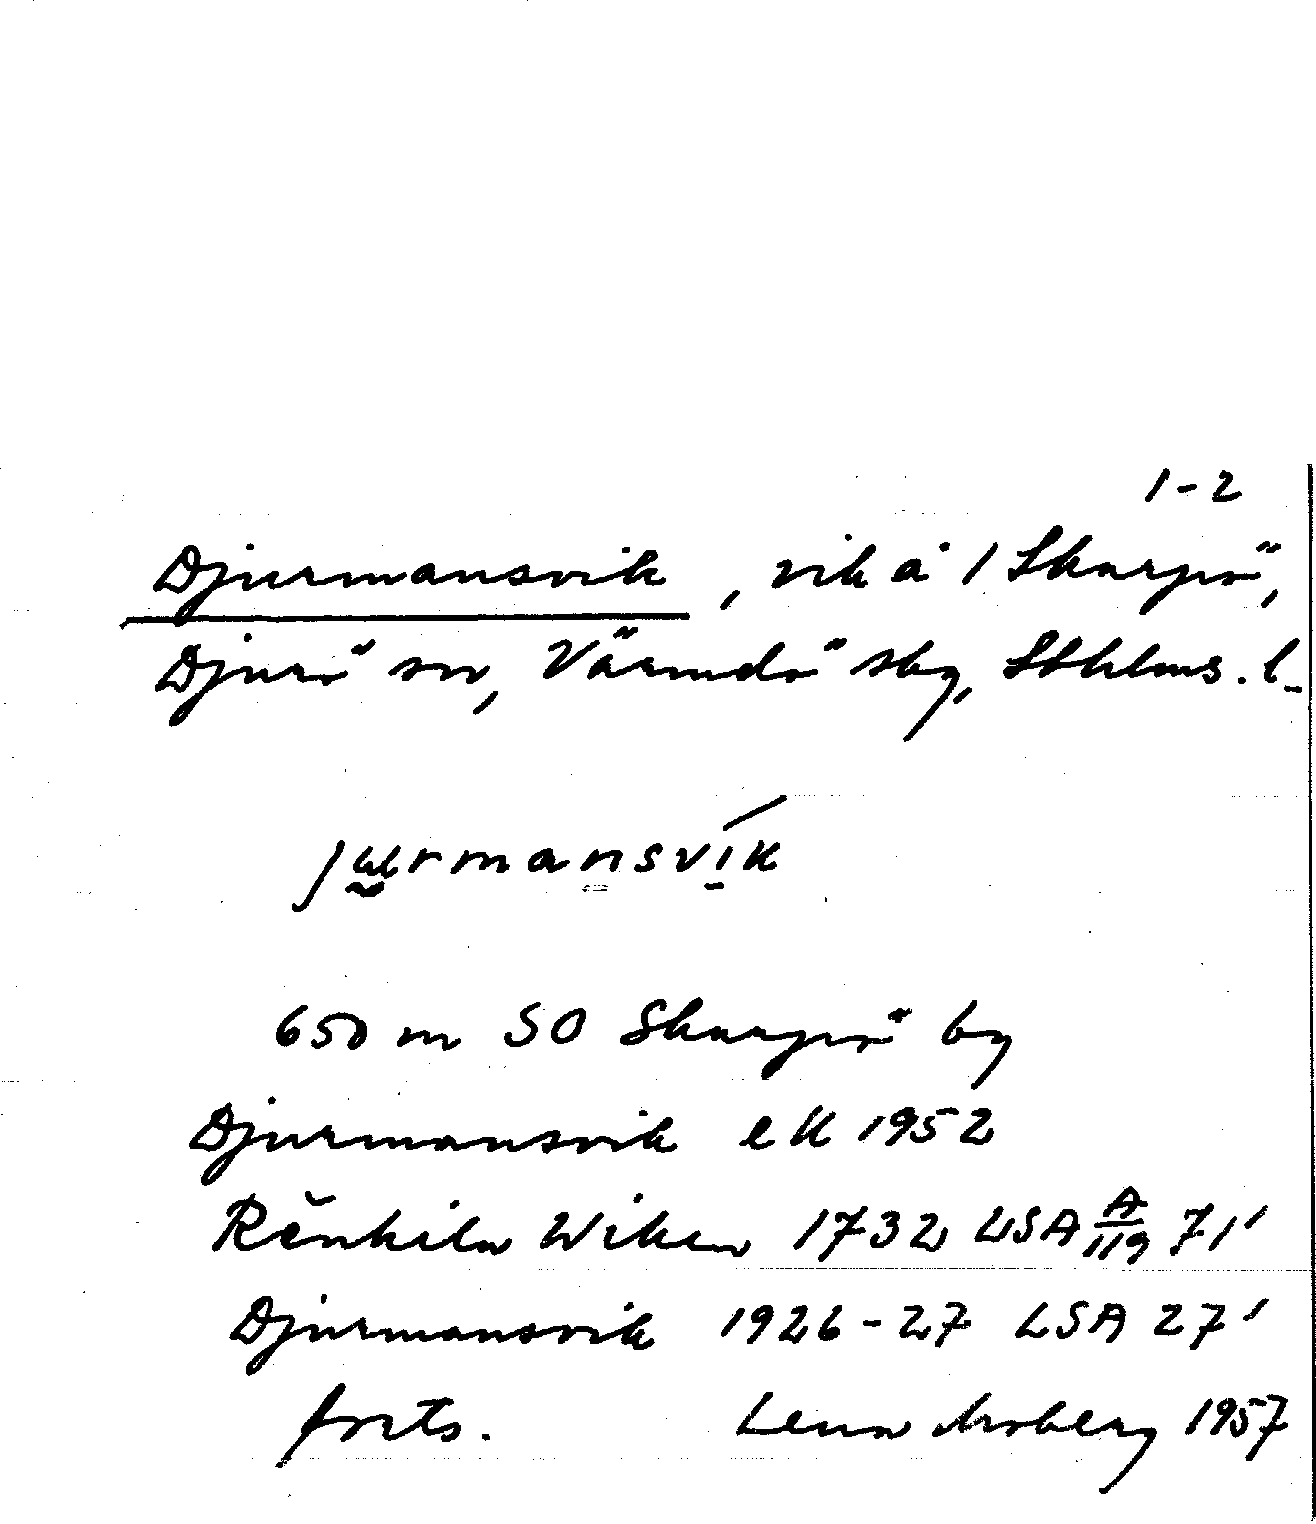 1-2
Djurmansvik, vik å 1 Skarpö,
Djurö sn, Värmdö skg, Sthlms. l.
jurmansvik
650 m SO Skarpö by
Djurmansvik eK 1952
Rĕnkiln Wiken 1732 LSA A/119 71'
Djurmansvik 1926-27 LSA 27'
forts. Lena Moberg 1957